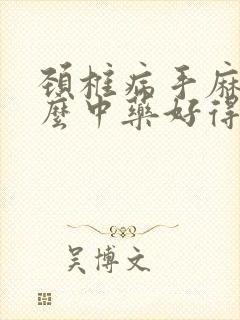 颈椎病手麻
麼中藥好得
吴博文